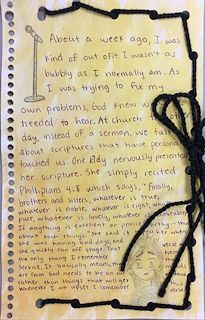 About a week ago, I was
kind of out of it. I wasn't as
bubbly as I normally am. As
I was trying to fix my
own problems, God knew w
needed to hear. At church
day, instead of a sermon, we
about scriptures that have person
touched us. One lady nervously presented
her scripture. She simply recited
Philippians 4:8 which says, "Finally,
brothers and sisters, whatever is true,
whatever is noble, whatever is right, what
pure, whatever is lovely, whatever is
If anything is excellent or praiseworthy
about such things." She said
she was having bad days, and verse
she quickly ran off stage. That
the only thing I remember
service. It basically means,
are from God needs to be on our
rather than things that will get
whenever I am upset I remember